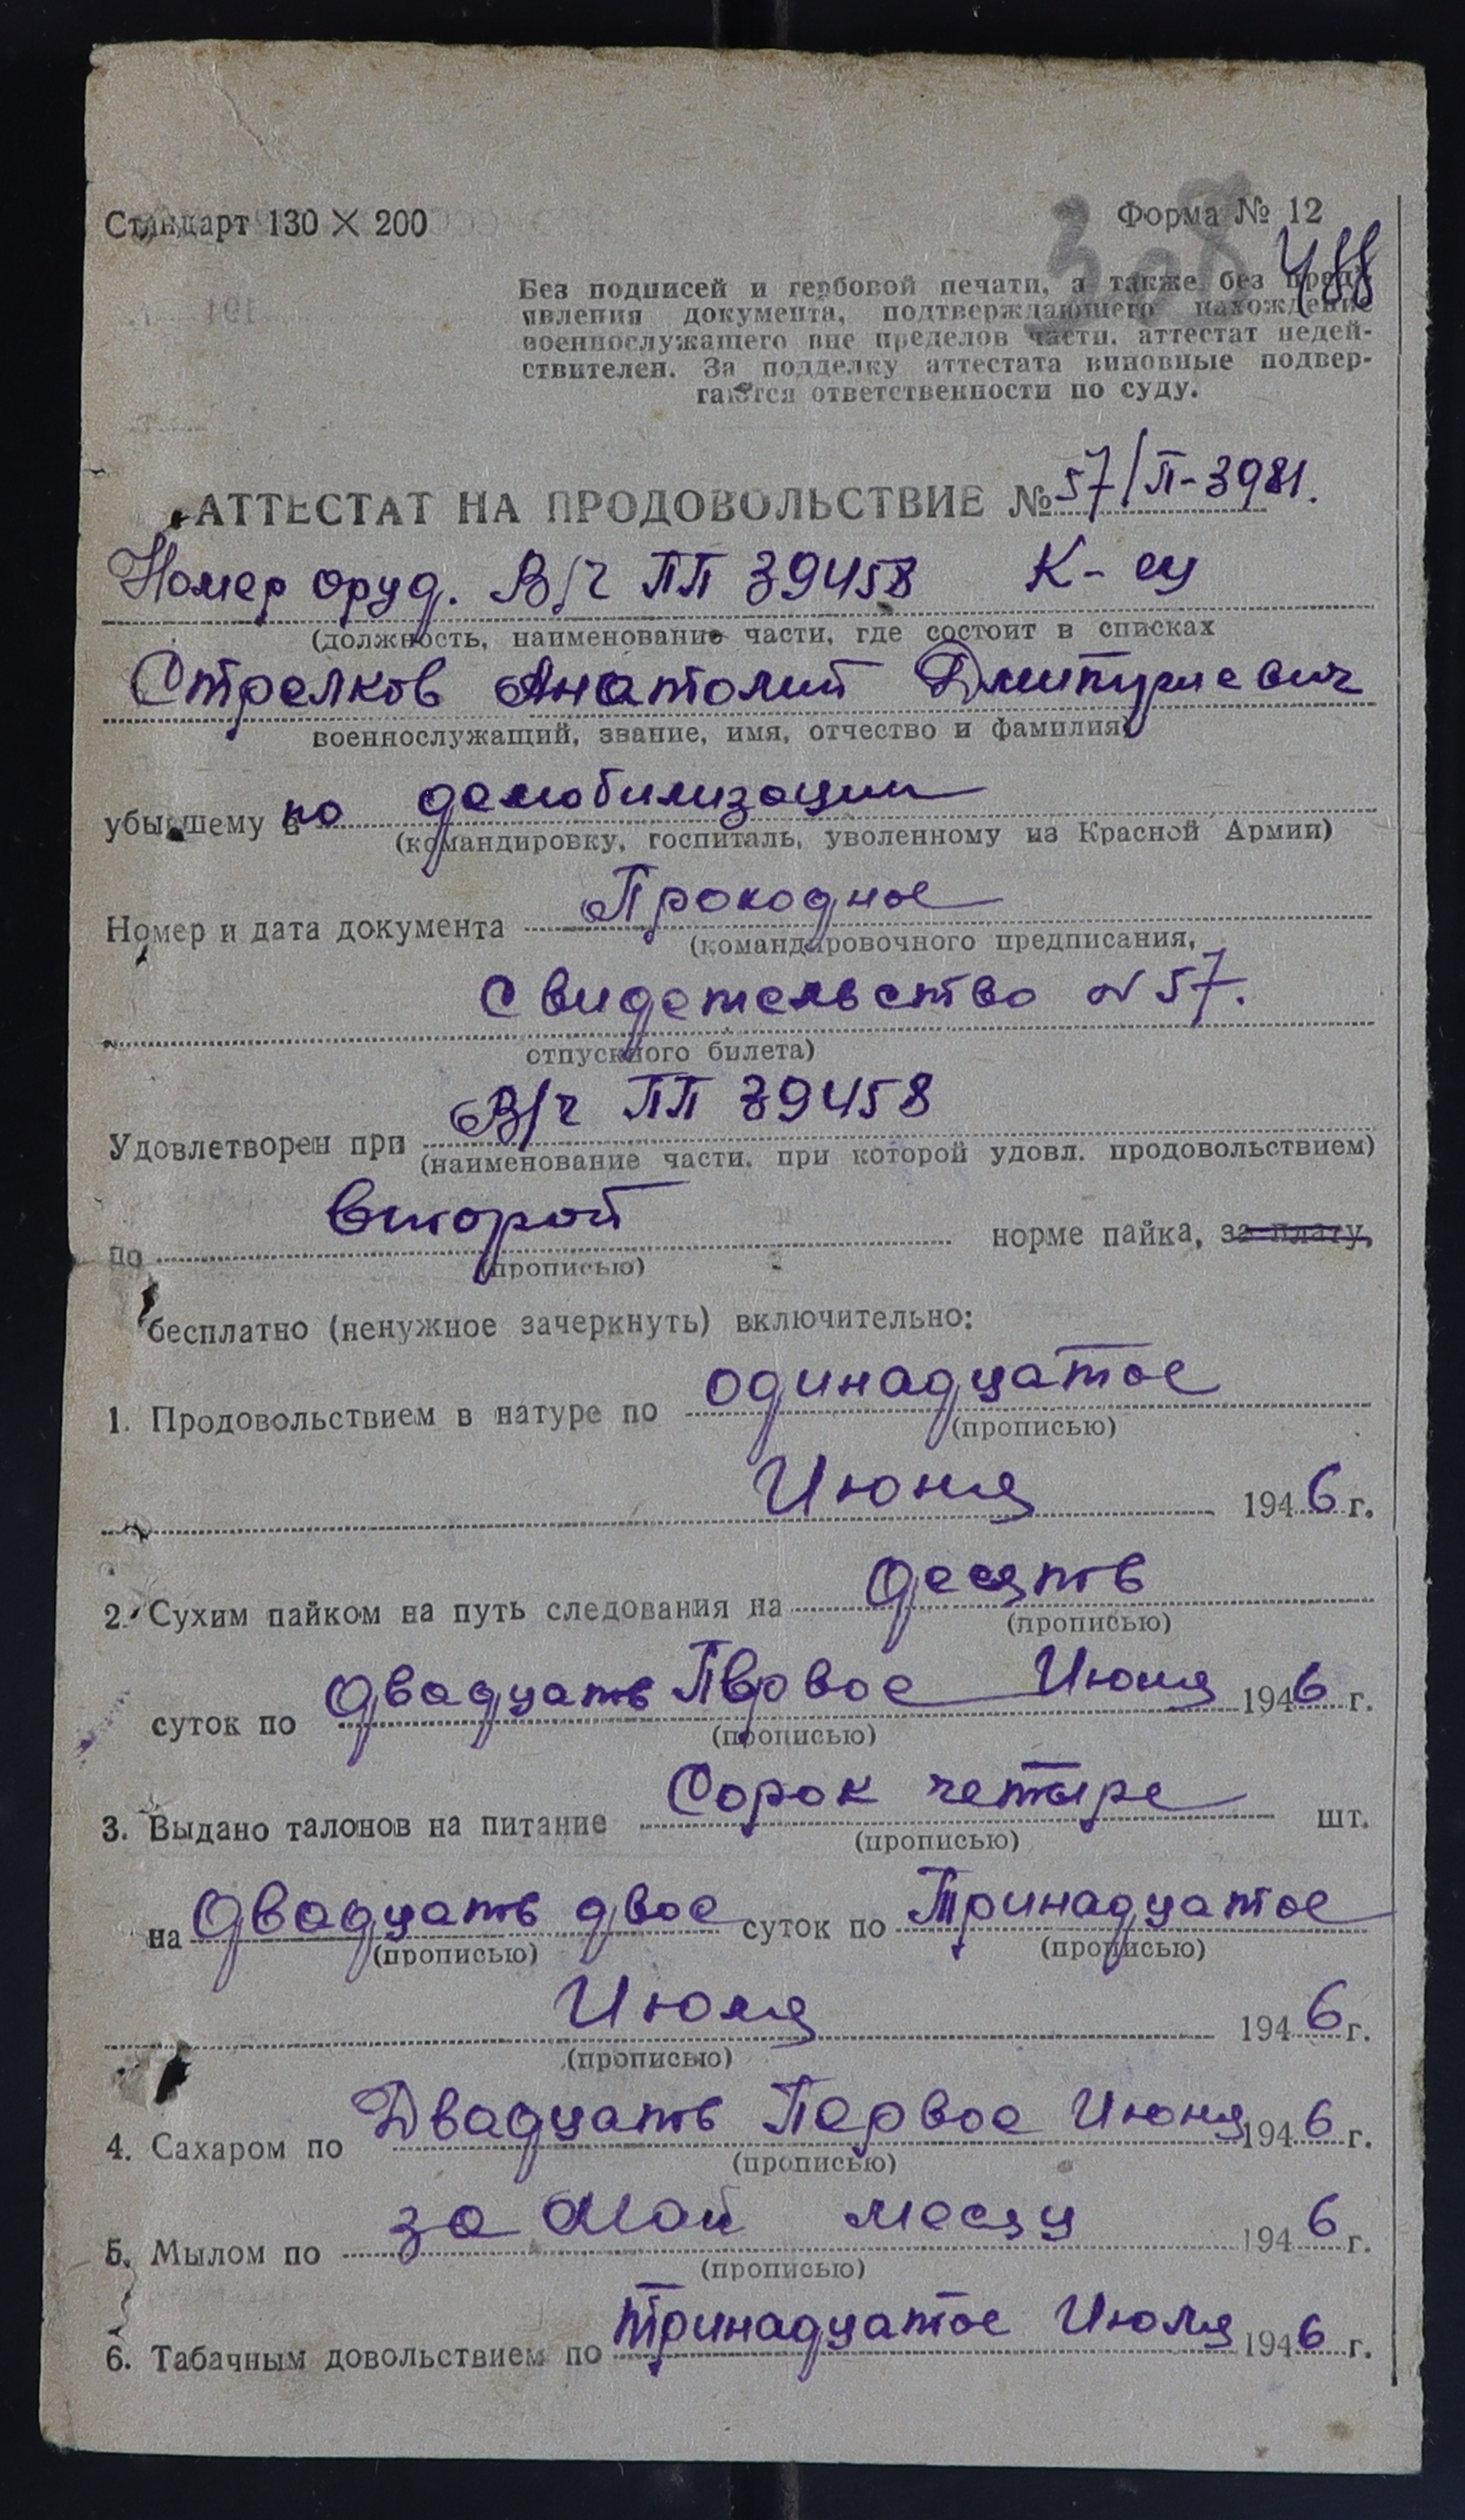 Стандарт 130 × 200
Форма № 12
308
488
Без подписей и гербовой печати, а также без предъ-
явления документа, подтверждающего нахождение
военнослужащего вне пределов части, аттестат недей-
ствителен. За подделку аттестата виновные подвер-
гаются ответственности по суду.
АТТЕСТАТ НА ПРОДОВОЛЬСТВИЕ № 57/П-3981.
Номер оруд. В/ч ПП 39458 К-ец
(должность, наименование части, где состоит в списках
Стрелков Анатолий Дмитриевич
военнослужащий, звание, имя, отчество и фамилия)
убывшему в по демобилизации
(командировку, госпиталь, уволенному из Красной Армии)
Номер и дата документа Проходное
(командировочного предписания,
Свидетельство № 57.
отпускного билета)
Удовлетворен при В/ч ПП 39458
(наименование части, при которой удовл. продовольствием)
по второй норме пайка, за плату,
(прописью)
бесплатно (ненужное зачеркнуть) включительно:
1. Продовольствием в натуре по одинадцатое
(прописью)
Июня 1946 г.
2. Сухим пайком на путь следования на десять
(прописью)
суток по двадцать Первое Июня 1946 г.
(прописью)
3. Выдано талонов на питание Сорок четыре шт.
(прописью)
на двадцать двое суток по Тринадцатое
(прописью) (прописью)
Июля 1946 г.
(прописью)
4. Сахаром по Двадцать Первое Июня 1946 г.
(прописью)
5. Мылом по за Май месяц 1946 г.
(прописью)
6. Табачным довольствием по тринадцатое Июля 1946 г.